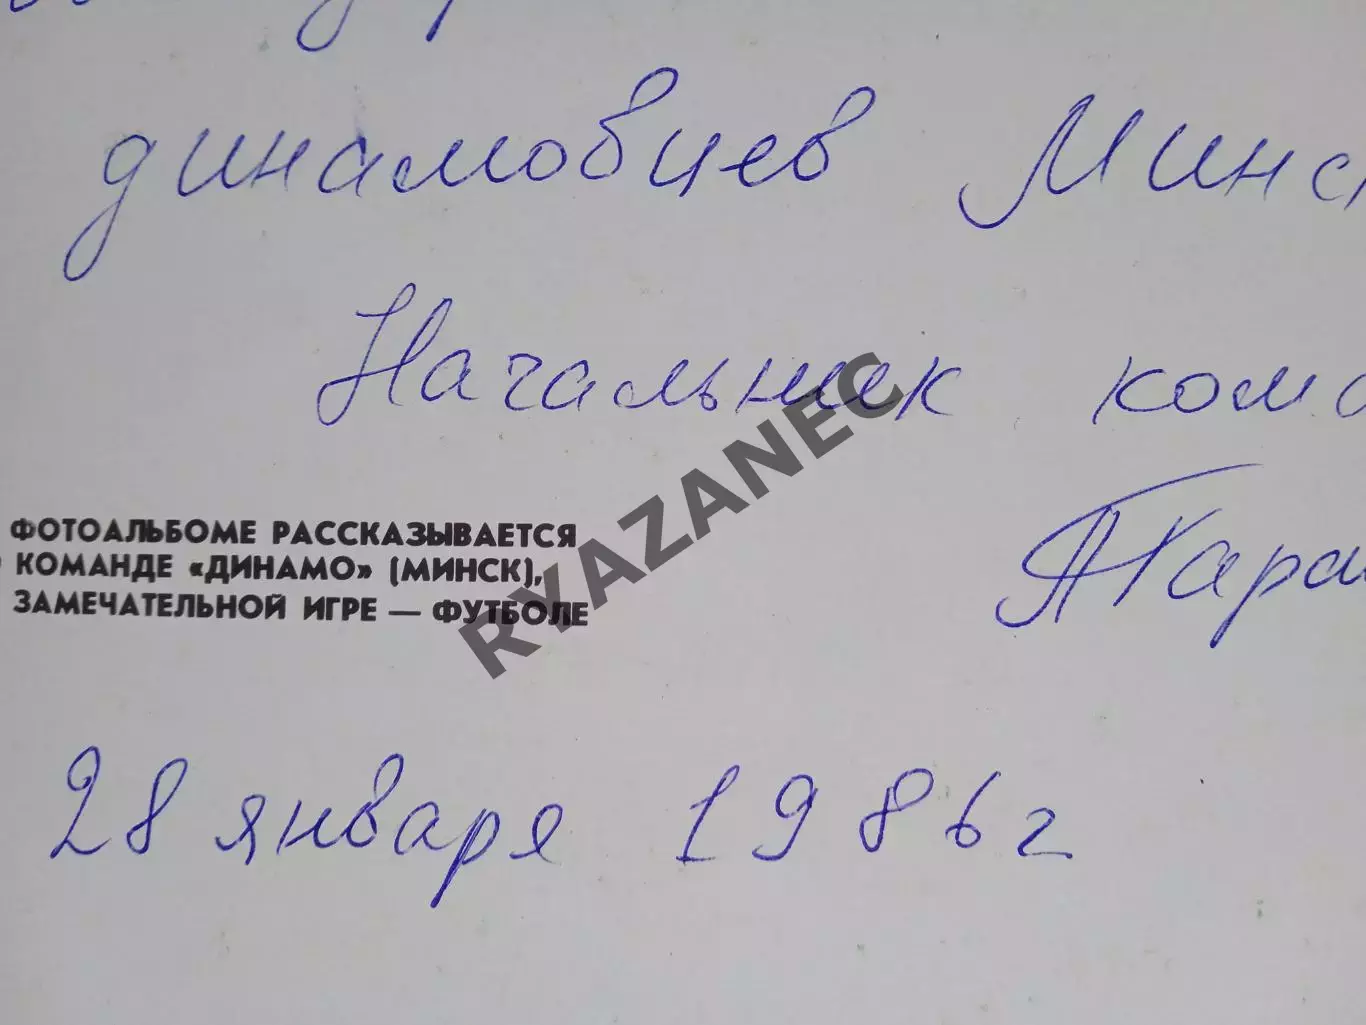 динамовцев Минск
Начальник кома
ФОТОАЛЬБОМЕ РАССКАЗЫВАЕТСЯ
КОМАНДЕ «ДИНАМО» (МИНСК),
ЗАМЕЧАТЕЛЬНОЙ ИГРЕ — ФУТБОЛЕ
RYAZANEC
28 января 1986 г